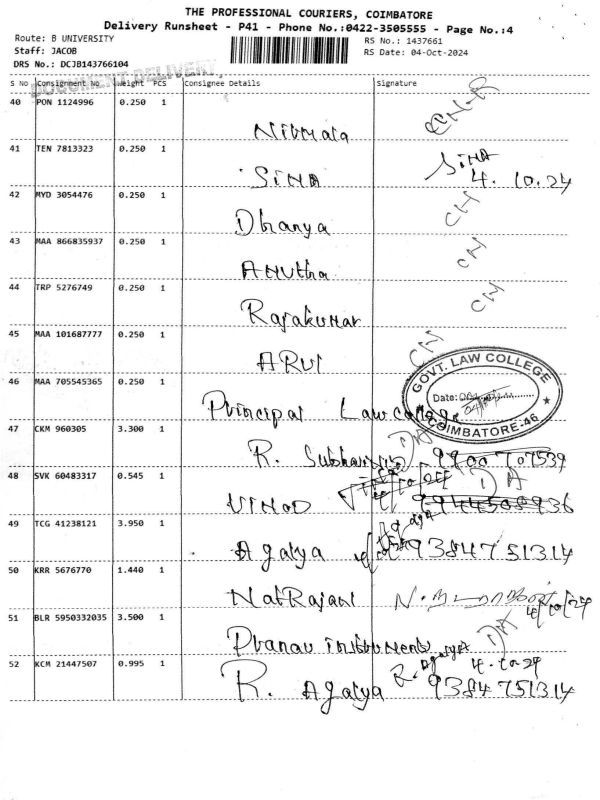 THE PROFESSIONAL COURIERS, COIMBATORE
Delivery Runsheet - P41 - Phone No.:0422-3505555 - Page No.:4
Route: B UNIVERSITY
RS No.: 1437661
Staff: JACOB
RS Date: 04-Oct-2024
DRS No.: DCJB143766104
DOCUMENT DELIVERY
S No Consignment No Weight PCS Consignee Details Signature
40 PON 1124996 0.250 1
Nirmala
41 TEN 7813323 0.250 1
SINA SINA
4. 10.24
42 MYD 3054476 0.250 1
Dhanya CH
43 MAA 866835937 0.250 1
Anutha CH
44 TRP 5276749 0.250 1
Rajakumar CH
45 MAA 101687777 0.250 1
ARUl CH
46 MAA 705545365 0.250 1
GOVT. LAW COLLEGE
Date:
COIMBATORE-46
Principal Law college
47 CKM 960305 3.300 1
R. D/A
48 SVK 60483317 0.545 1
VINOD D/A
49 TCG 41238121 3.950 1
Agalya 9384751314
50 KRR 5676770 1.440 1
NatRajan 4/10/24
51 BLR 5950332035 3.500 1
Pranav instruments D/A
52 KCM 21447507 0.995 1
R. Agalya R. Agalya 4.10.24
9384751314